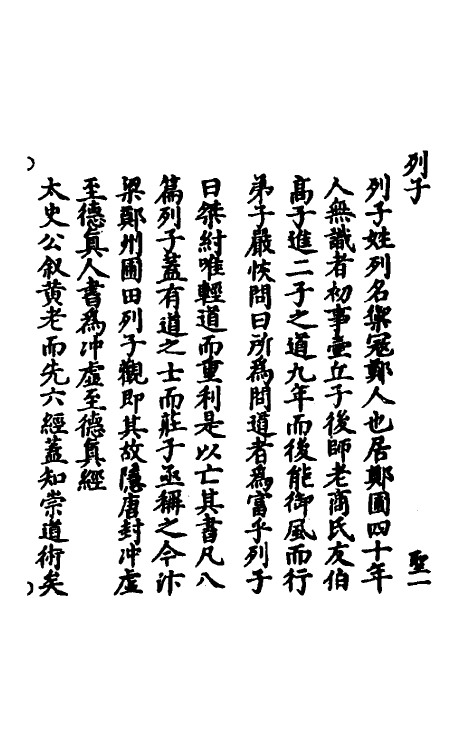 列子
聖一
列子姓列名禦寇鄭人也居鄭圃四十年
人無識者初事壺丘子後師老商氏友伯
高子進二子之道九年而後能御風而行
弟子嚴恢問曰所為問道者為富乎列子
曰桀紂唯輕道而重利是以亡其書凡八
篇列子蓋有道之士而莊子亟稱之今汴
梁鄭州圃田列子觀即其故隱唐封冲虛
至德真人書為冲虛至德真經
太史公叙黄老而先六經蓋知崇道術矣